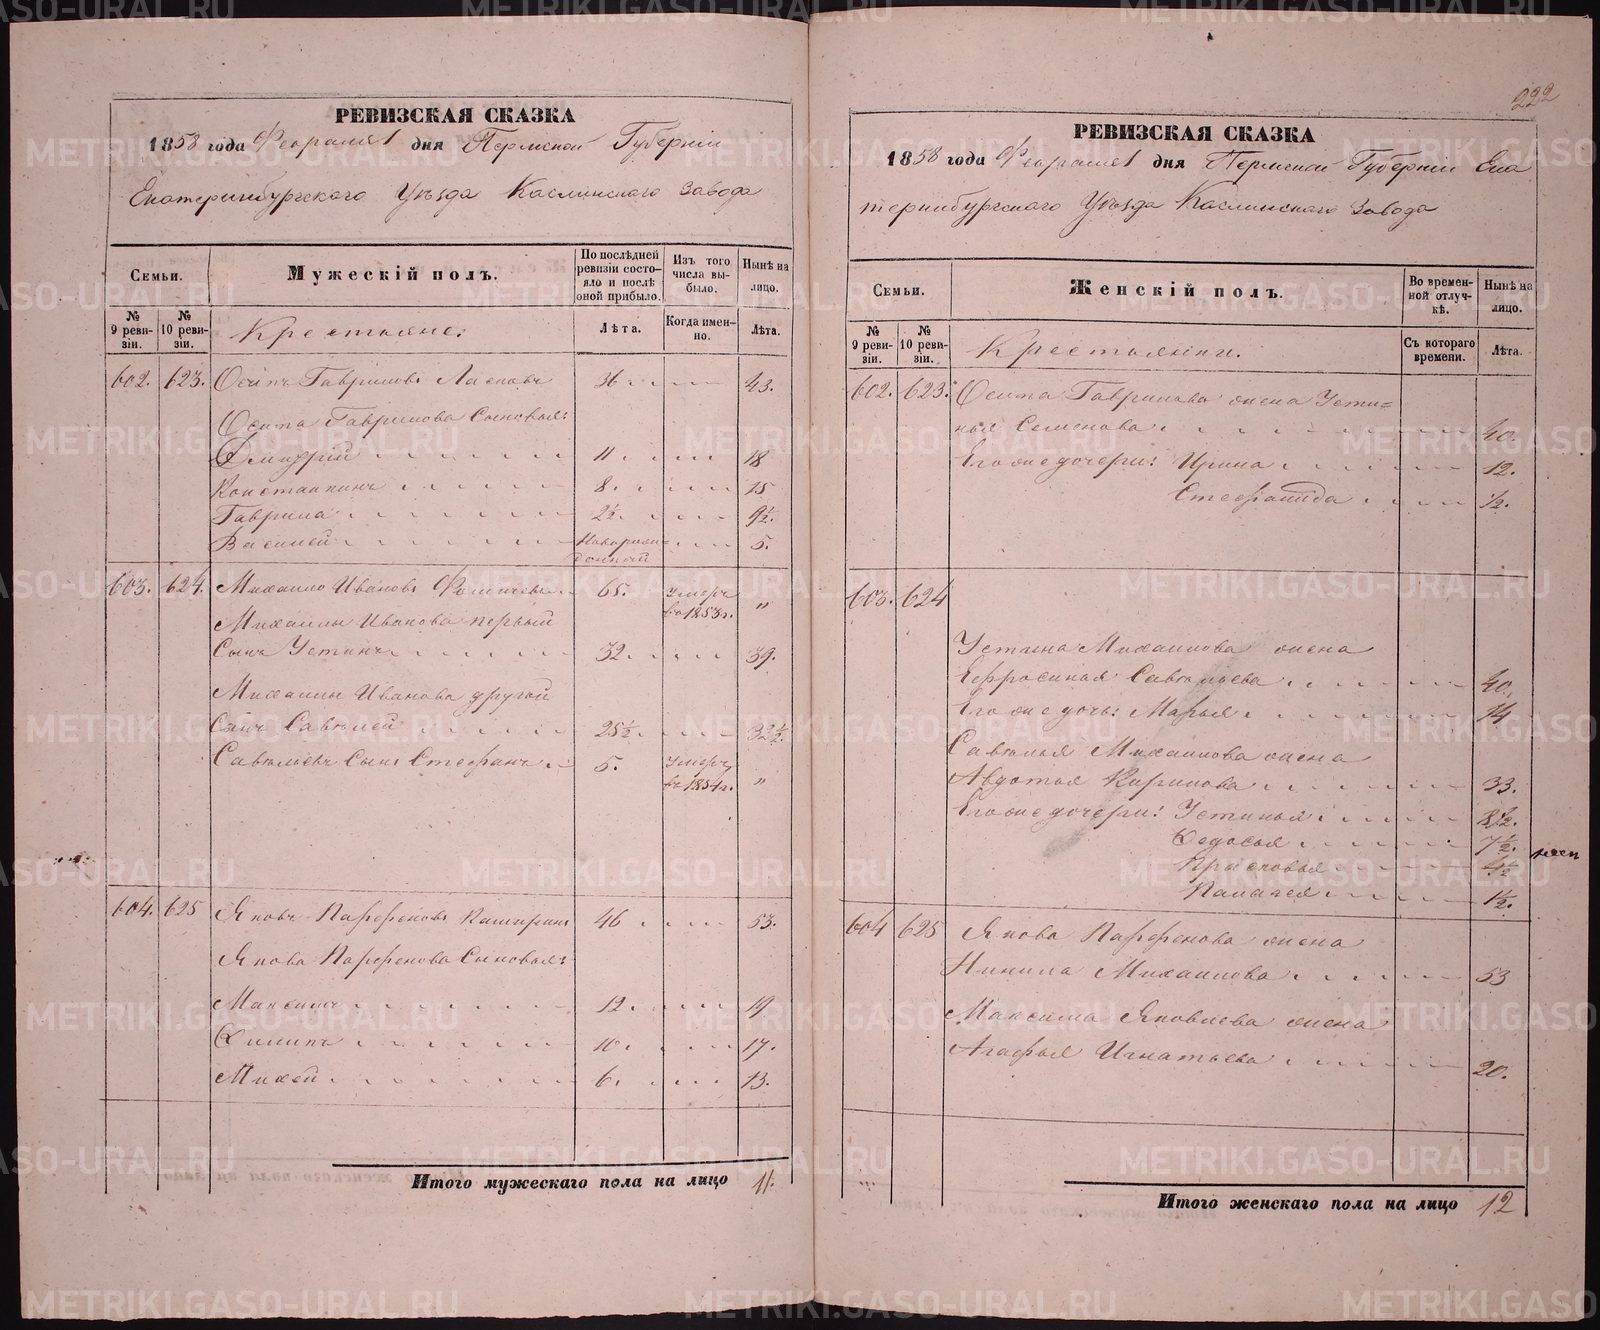 РЕВИЗСКАЯ СКАЗКА
1858 года Февраля 1 дня Пермской Губерніи
Екатеринбургскаго Уѣзда Каслинскаго Завода
Семьи.
Мужескій полъ.
По послѣдней ревизіи состояло и послѣ оной прибыло.
Изъ того числа выбыло.
Нынѣ на лицо.
№ 9 ревизіи.
№ 10 ревизіи.
Крестьяне:
Лѣта.
Когда именно.
Лѣта.
602. 623. Осипъ Гавриловъ 36 43.
Осипа Гаврилова Сыновья:
Дмитрий 11 18
Константинъ 8. 15
Гаврила 2½ 9½.
Василей Новорожденный 5.
603. 624. Михаило Ивановъ 65. Умеръ въ 1853г. "
Михаилы Иванова первый
Сынъ Устинъ 32 39.
Михаилы Иванова другой
Сынъ Савѣлей 25½ 32½.
Савѣльевъ Сынъ Стефанъ 5. Умеръ въ 1854г. "
604. 625 Яковъ Парфеновъ 46 53.
Якова Парфенова Сыновья:
Максимъ 12 19
Филипъ 10. 17.
Михей 6. 13.
Итого мужескаго пола на лицо 11.
222
РЕВИЗСКАЯ СКАЗКА
1858 года Февраля 1 дня Пермской Губерніи Ека
теринбургскаго Уѣзда Каслинскаго Завода
Семьи.
Женскій полъ.
Во временной отлучкѣ.
Нынѣ на лицо.
№ 9 ревизіи.
№ 10 ревизіи.
Крестьянки.
Съ котораго времени.
Лѣта.
602. 623. Осипа Гаврилова жена Усти=
нья Семенова 40.
Его же дочери: Ирина 12.
Стефанида ½.
603. 624
Устина Михаилова жена
Ефросинья Савѣльева 40.
Его же дочь: Марья 14
Савѣлья Михаилова жена
Авдотья Кирилова 33.
Его же дочери: Устинья
Федосья 7½.
Прасковья
Палагея 1½.
604 625 Якова Парфенова жена
Михаилова 53
Максима Яковлева жена
Агафья Игнатьева 20.
Итого женскаго пола на лицо 12
METRIKI.GASO-URAL.RU